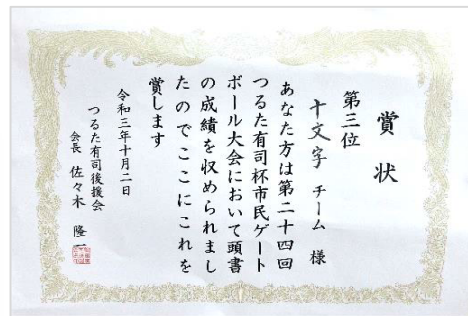 賞状
第三位
十文字 チーム 様
あなた方は第二十四回
つるた有司杯市民ゲート
ボール大会において頭書
の成績を収められまし
たのでここにこれを
賞します
令和三年十月二日
つるた有司後援会
会長 佐々木 隆一